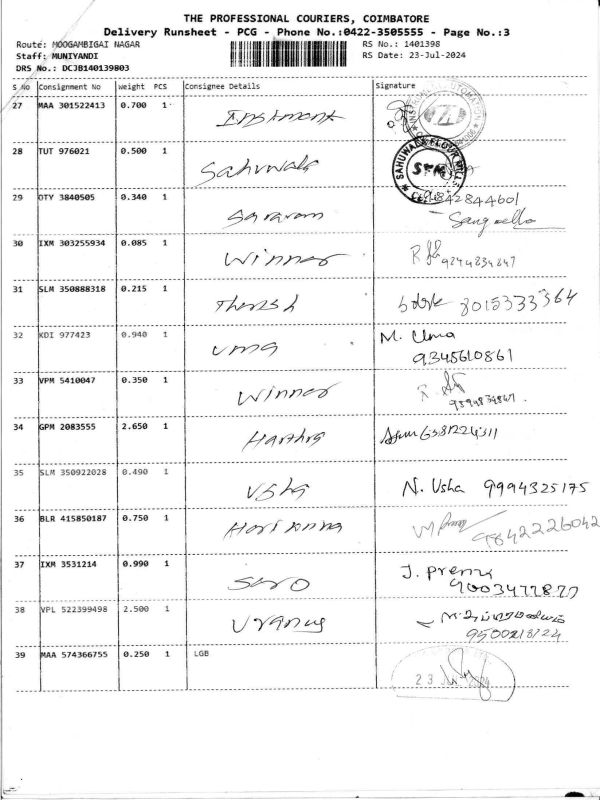 THE PROFESSIONAL COURIERS, COIMBATORE
Delivery Runsheet - PCG - Phone No.:0422-3505555 - Page No.:3
Route: MOOGAMBIGAI NAGAR
RS No.: 1401398
Staff: MUNIYANDI
RS Date: 23-Jul-2024
DRS No.: DCJB140139803
S No Consignment No Weight PCS Consignee Details Signature
27 MAA 301522413 0.700 1 Instment
28 TUT 976021 0.500 1 Sahuwala
SAHUWALA FLOUR MILLS
29 OTY 3840505 0.340 1 Saravan 9842844601
30 IXM 303255934 0.085 1 Winner
31 SLM 350888318 0.215 1 8015333364
32 KDI 977423 0.940 1 Uma M. Uma
9345610861
33 VPM 5410047 0.350 1 Winner
34 GPM 2083555 2.650 1
35 SLM 350922028 0.490 1 Usha N. Usha 9994325175
36 BLR 415850187 0.750 1 9842226042
37 IXM 3531214 0.990 1 Saro J. Prema
38 VPL 522399498 2.500 1 Uranus
39 MAA 574366755 0.250 1 LGB